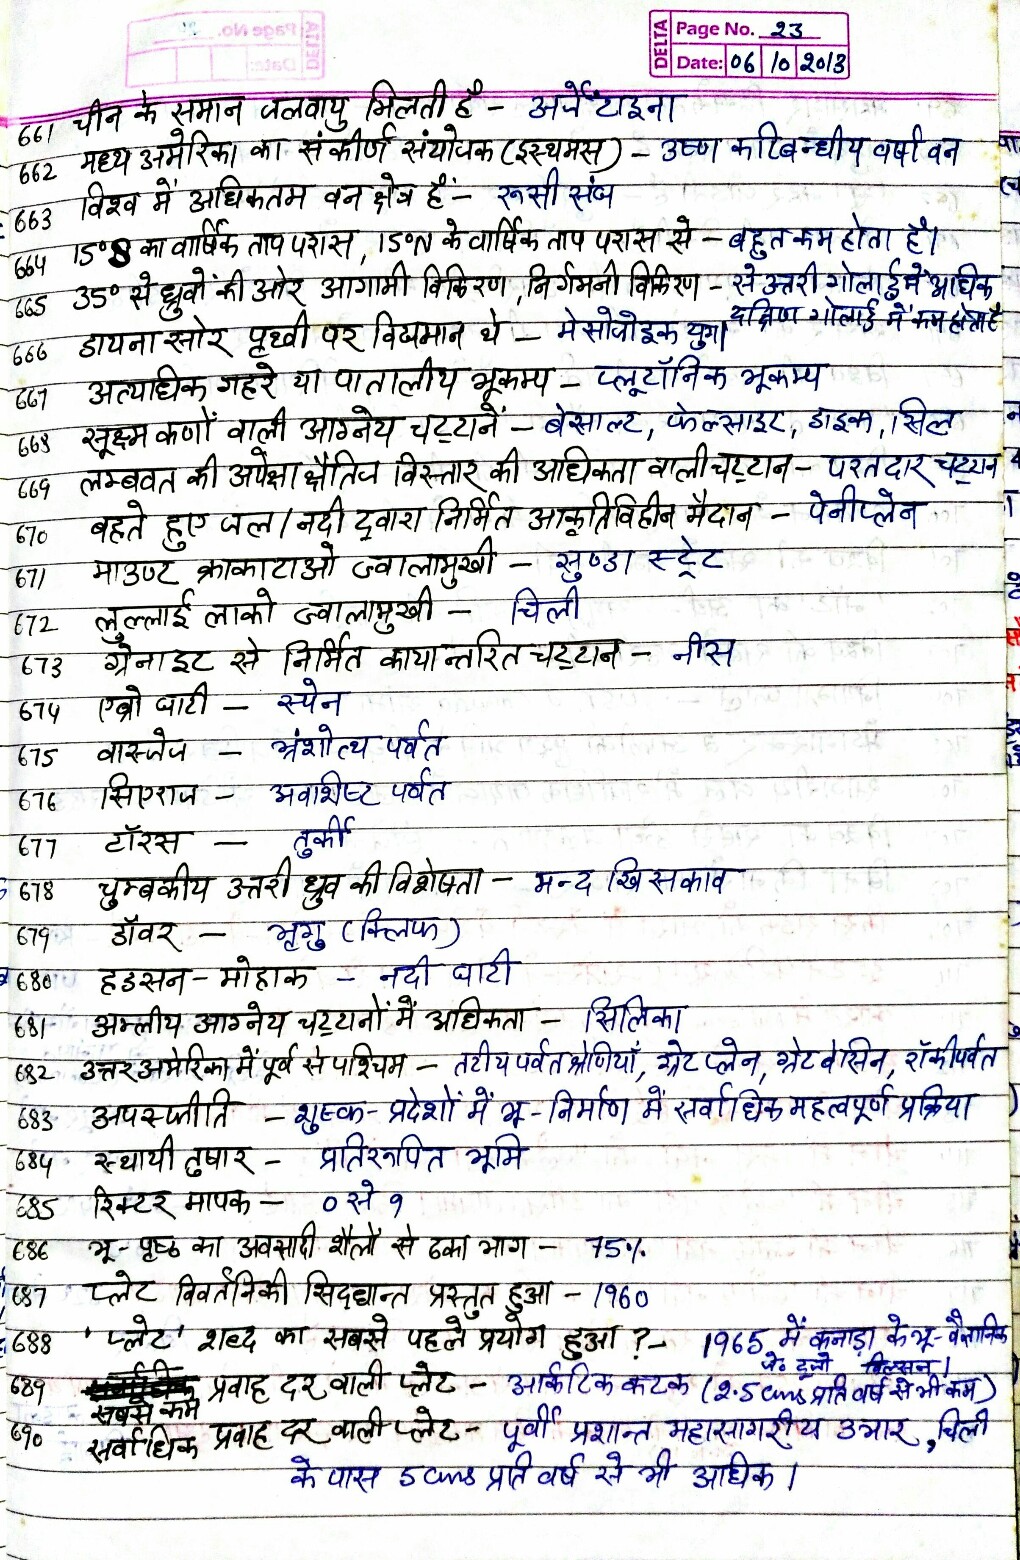 DELTA
Page No. 23
Date: 06 10 2013
661 चीन के समान जलवायु मिलती है - अर्जेंटाइना
662 मध्य अमेरिका का संकीर्ण संयोजक (इस्थमस) - उष्ण कटिबन्धीय वर्षा वन
663 विश्व में अधिकतम वन क्षेत्र हैं - रूसी संघ
664 15°S का वार्षिक ताप परास, 15°N के वार्षिक ताप परास से - बहुत कम होता है।
665 35° से ध्रुवों की ओर आगामी विकिरण, निर्गमनी विकिरण - से उत्तरी गोलार्द्ध में अधिक
दक्षिण गोलार्द्ध में कम होता है
666 डायनासोर पृथ्वी पर विद्यमान थे - मेसोजोइक युग।
667 अत्यधिक गहरे या पातालीय भूकम्प - प्लूटॉनिक भूकम्प
668 सूक्ष्म कणों वाली आग्नेय चट्टानें - बेसाल्ट, फेल्साइट, डाइक, सिल
669 लम्बवत की अपेक्षा क्षैतिज विस्तार की अधिकता वाली चट्टान - परतदार चट्टान
670 बहते हुए जल / नदी द्वारा निर्मित आकृतिविहीन मैदान - पेनीप्लेन
671 माउण्ट क्राकाटाओ ज्वालामुखी - सुण्डा स्ट्रेट
672 लुल्लाई लाको ज्वालामुखी - चिली
673 ग्रेनाइट से निर्मित कायान्तरित चट्टान - नीस
674 एब्रो घाटी - स्पेन
675 वास्जेज - भ्रंशोत्थ पर्वत
676 सिएराज - अवशिष्ट पर्वत
677 टॉरस - तुर्की
678 चुम्बकीय उत्तरी ध्रुव की विशेषता - मन्द खिसकाव
679 डॉवर - भृगु (क्लिफ)
680 हडसन - मोहाक - नदी घाटी
681 अम्लीय आग्नेय चट्टानों में अधिकता - सिलिका
682 उत्तर अमेरिका में पूर्व से पश्चिम - तटीय पर्वत श्रेणियाँ, ग्रेट प्लेन, ग्रेट बेसिन, रॉकी पर्वत
683 अपस्फीति - शुष्क - प्रदेशों में भू - निर्माण में सर्वाधिक महत्वपूर्ण प्रक्रिया
684 स्थायी तुषार - प्रतिरूपित भूमि
685 रिक्टर मापक - 0 से 9
686 भू - पृष्ठ का अवसादी शैलों से ढका भाग - 75%
687 प्लेट विवर्तनिकी सिद्धान्त प्रस्तुत हुआ - 1960
688 'प्लेट' शब्द का सबसे पहले प्रयोग हुआ ? - 1965 में कनाडा के भू - वैज्ञानिक
जे० टूजो विल्सन।
689 सबसे कम प्रवाह दर वाली प्लेट - आर्कटिक कटक (2.5 cms प्रति वर्ष से भी कम)
690 सर्वाधिक प्रवाह दर वाली प्लेट - पूर्वी प्रशान्त महासागरीय उभार, चिली
के पास 5 cms प्रति वर्ष से भी अधिक।